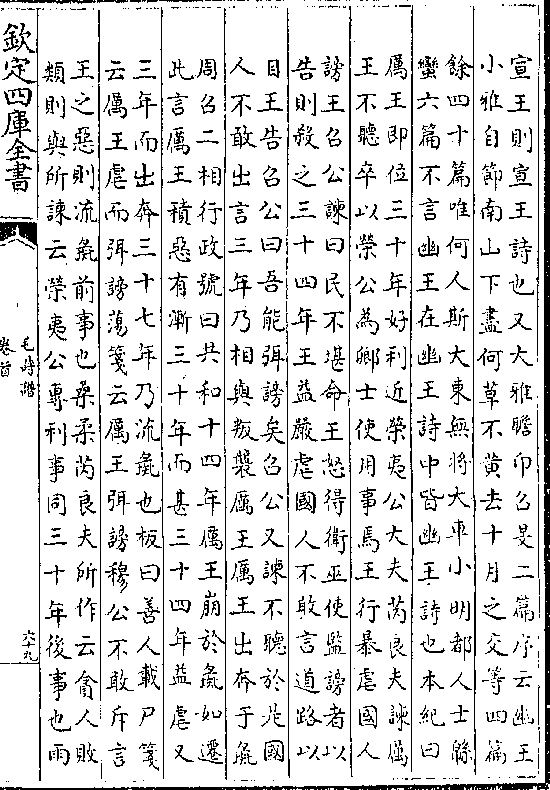 宣王則宣王詩也又大雅瞻卬召旻二篇序云幽王
小雅自節南山下盡何草不黃去十月之交等四篇
餘四十篇唯何人斯大東無將大車小明都人士緜
蠻六篇不言幽王在幽王詩中皆幽王詩也本紀曰
厲王即位三十年好利近榮夷公大夫芮良夫諫厲
王不聽卒以榮公為卿士使用事焉王行暴虐國人
謗王召公諫曰民不堪命王怒得衛巫使監謗者以
告則殺之三十四年王益嚴虐國人不敢言道路以
目王告召公曰吾能弭謗矣召公又諫不聽於是國
人不敢出言三年乃相與叛襲厲王厲王出奔于彘
周召二相行政號曰共和十四年厲王崩於彘如遷
此言厲王積惡有漸三十年而甚三十四年益虐又
三年而出奔三十七年乃流彘也板曰善人載尸箋
云厲王虐而弭謗蕩箋云厲王弭謗穆公不敢斥言
王之惡則流彘前事也桑柔芮良夫所作云貪人敗
類則與所諫云榮夷公專利事同三十年後事也雨
欽定四庫全書
毛詩譜
卷首
六十九